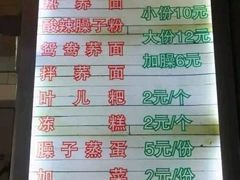 热荞面 小份10元
酸辣臊子粉
鸳鸯荞面 大份12元
拌荞面 加臊6元
叶儿粑 2元/个
冻糕 2元/个
臊子蒸蛋 5元/份
加菜 2元/份